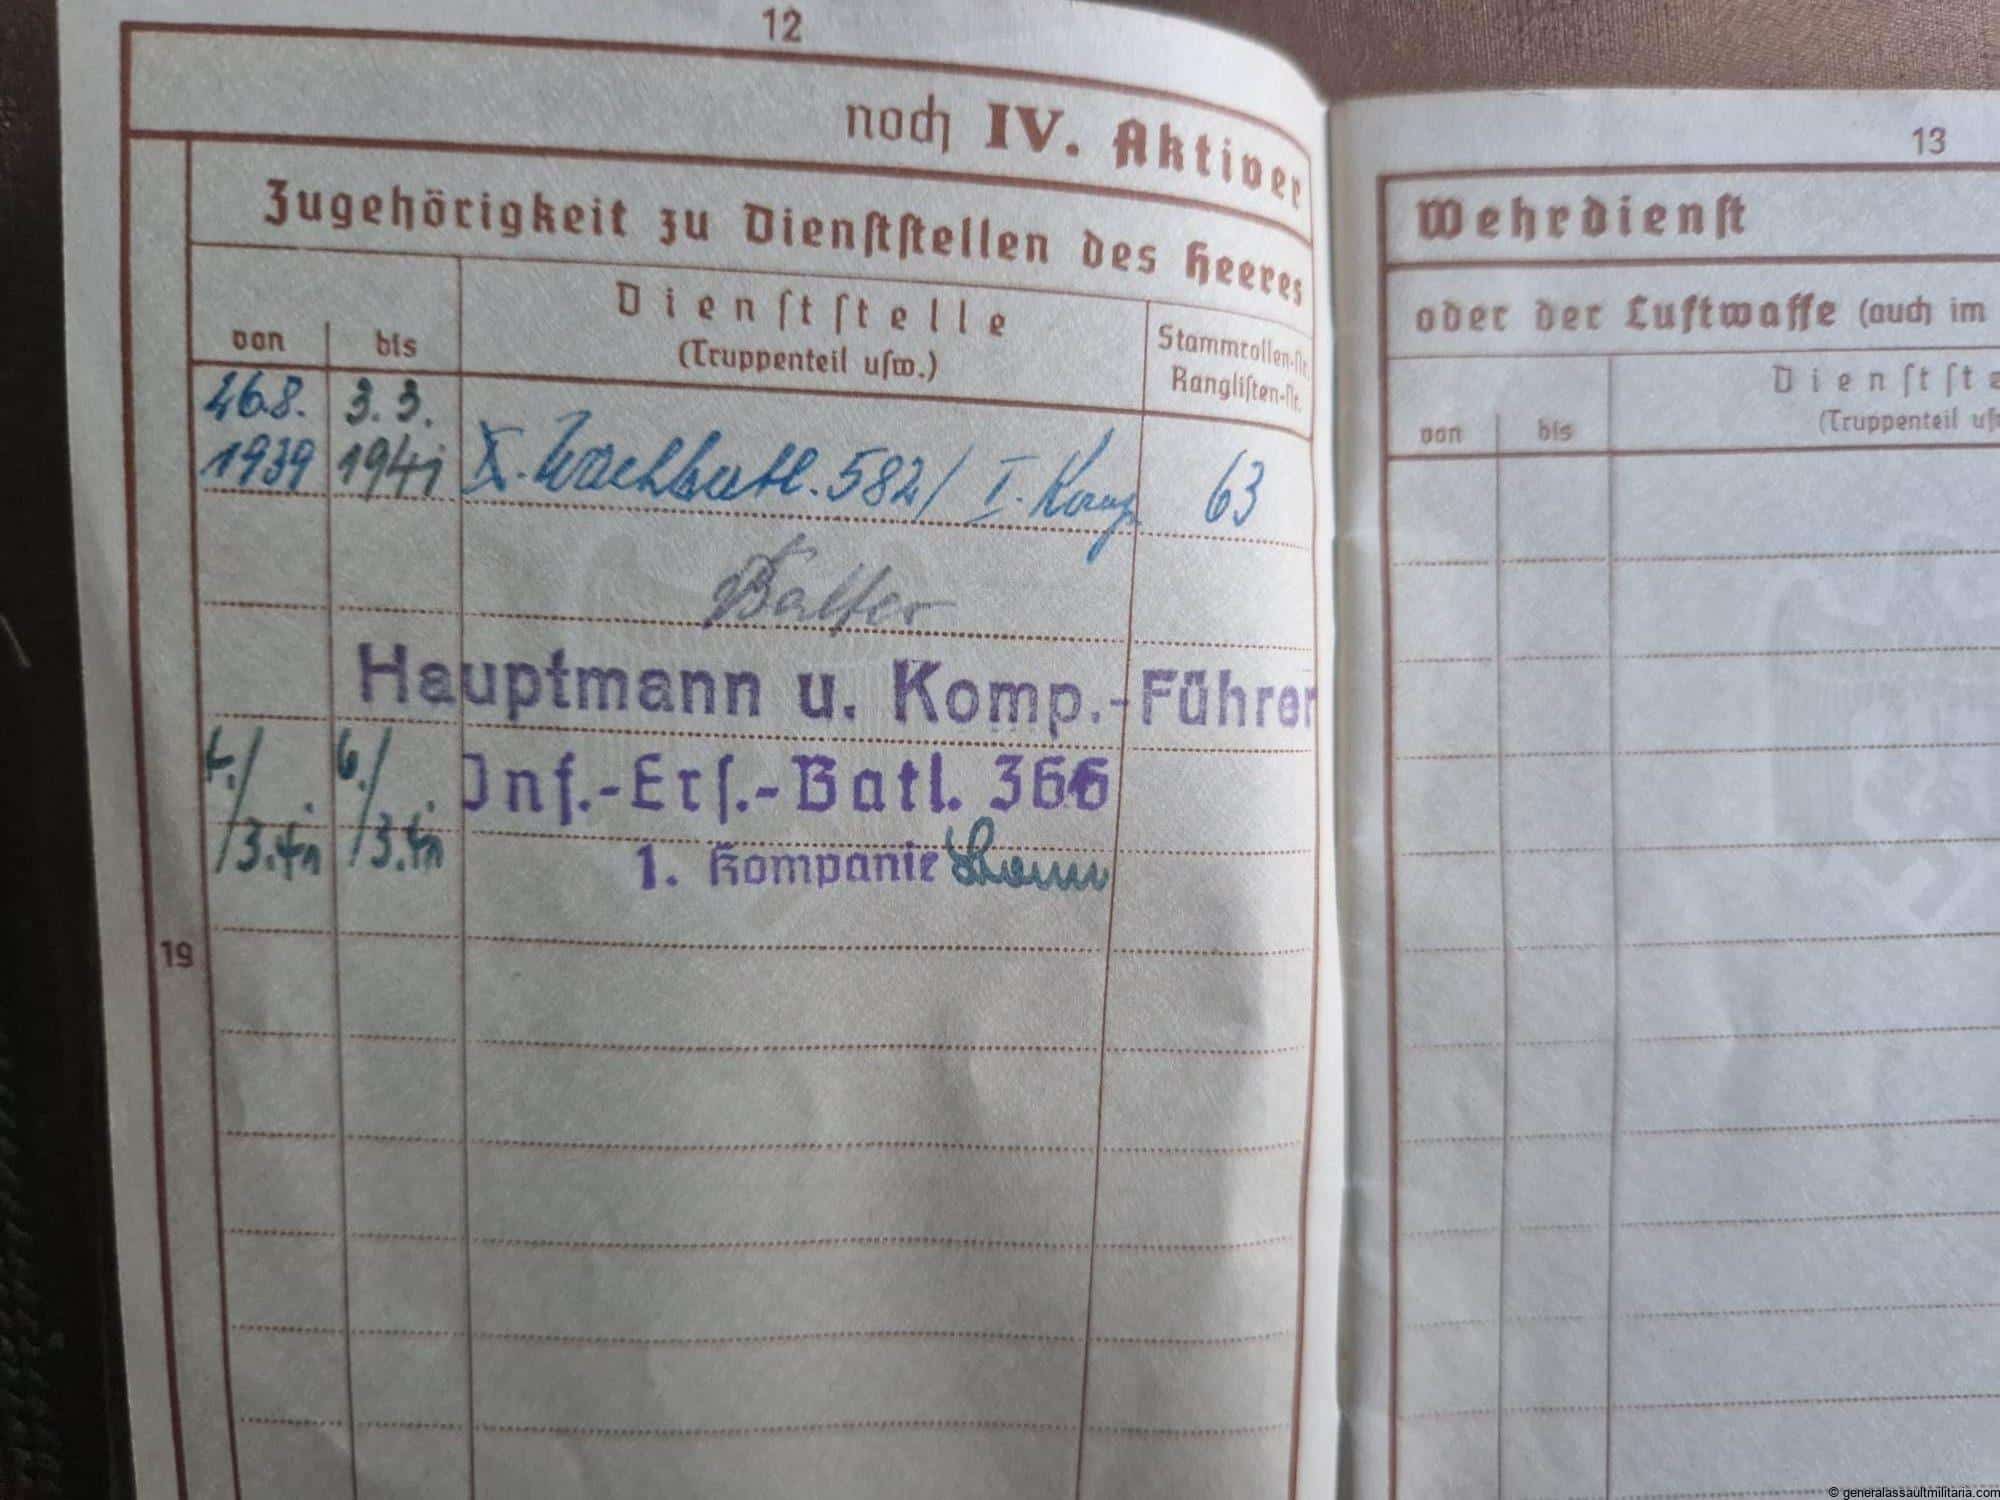 12
noch IV. Aktiver
Zugehörigkeit zu Dienststellen des Heeres
von
bis
Dienststelle
(Truppenteil usw.)
Stammrollen-Nr.
Ranglisten-Nr.
26.8.
1939
3.3.
1941
X. Wachbatl. 582/ I. Komp
63
Hauptmann u. Komp.-Führer
Inf.-Ers.-Batl. 366
1. Kompanie
6./
3.41
3.41
19
13
Wehrdienst
oder der Luftwaffe (auch im
von
bis
Dienstste
(Truppenteil us
© generalassaultmilitaria.com